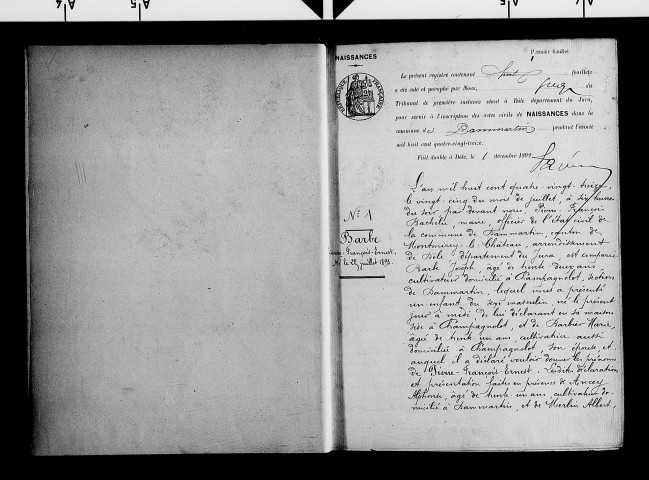 NAISSANCES
Premier feuillet
RÉPUBLIQUE FRANÇAISE
Le présent registre contenant huit feuillets
a été coté et paraphé par Nous, Juge du
Tribunal de première instance séant à Dôle département du Jura,
pour servir à l'inscription des actes civils de NAISSANCES dans la
commune de Dammartin pendant l'année
mil huit cent quatre-vingt-treize.
Fait double à Dôle, le 1 décembre 1892
N° 1
Barbe
Pierre-François-Ernest,
Né le 25 juillet 1893.
L'an mil huit cent quatre-vingt-treize,
le vingt-cinq du mois de juillet, à six heures
du soir, par devant nous, Pierre François
Bachelu, maire, officier de l'état civil de
la commune de Dammartin, canton de
Montmirey-le-Château, arrondissement
de Dole, département du Jura, est comparu
Barbe Joseph, âgé de trente deux ans,
cultivateur domicilié à Champagnolot, section
de Dammartin, lequel nous a présenté
un enfant du sexe masculin né le présent
jour à midi de lui déclarant en sa maison
sise à Champagnolot, et de Barbier Marie,
âgée de trente un ans, cultivatrice aussi
domiciliée à Champagnolot, son épouse, et
auquel il a déclaré vouloir donner les prénoms
de Pierre-François-Ernest. Lesdites déclaration
et présentation faites en présence de Ancey
Alphonse, âgé de trente un ans, cultivateur do-
micilié à Dammartin, et de Merlin Albert,